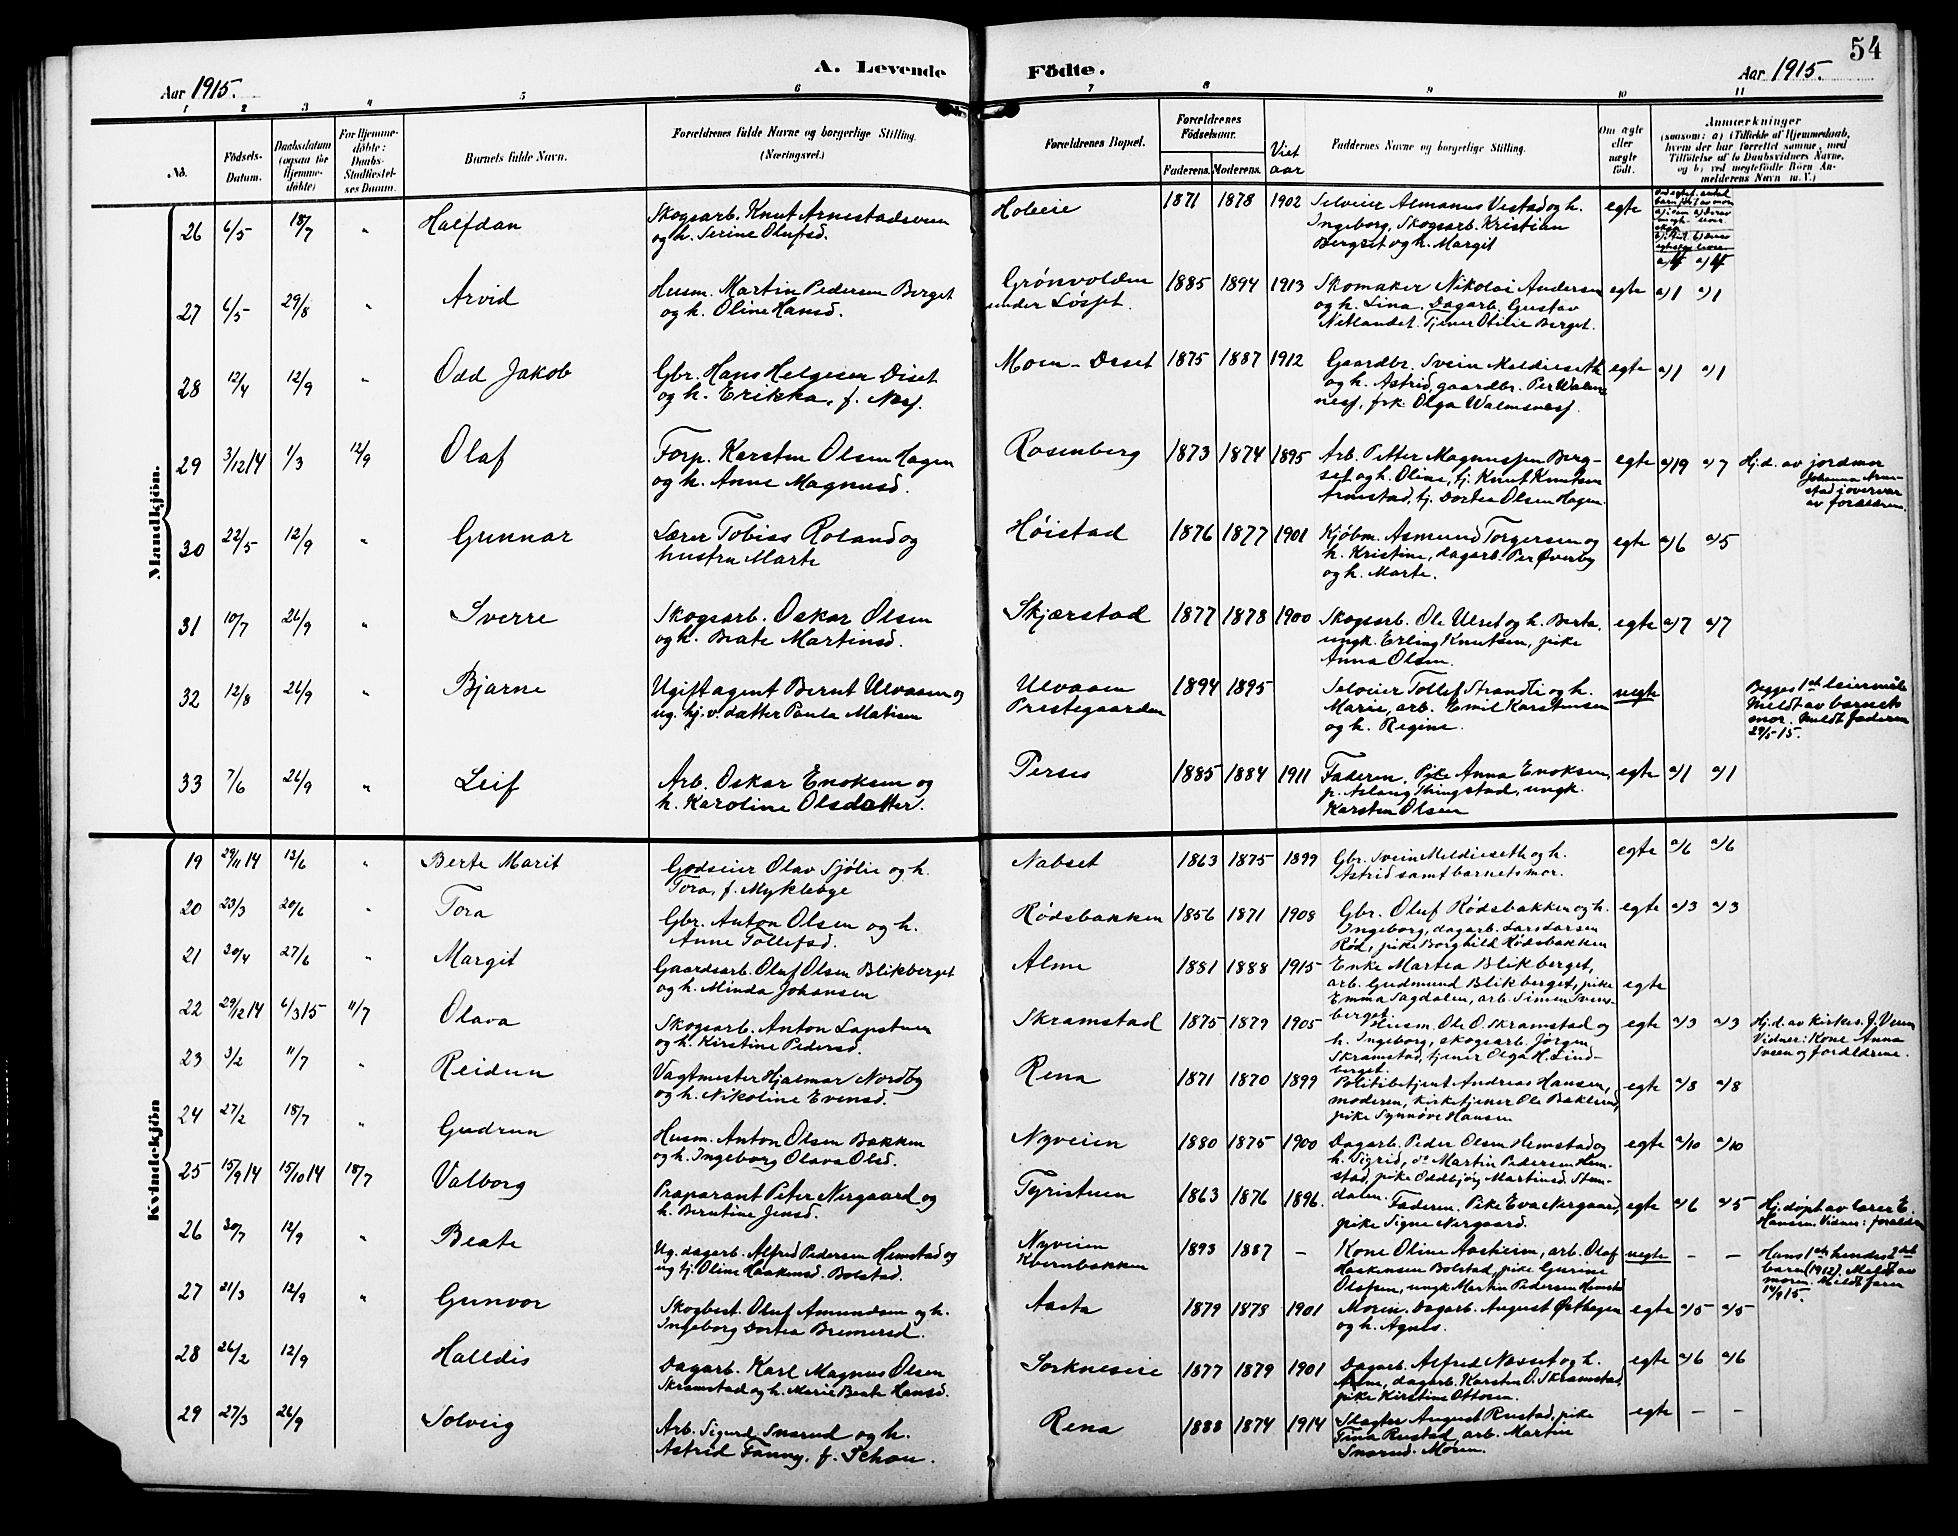 54
Aar 1915.
A. Levende
Födte.
Aar 1915.
1 2 3 4 5 6 7 8 9 10 11
No.
Födsels-
Datum.
Daabsdatum
(ogsaa for
Hjemme-
döbte)
For Hjemme-
döbte:
Daabs-
Stadfæstel-
ses Datum.
Barnets fulde Navn.
Forældrenes fulde Navne og borgerlige Stilling.
(Næringsvei.)
Forældrenes Bopæl.
Forældrenes
Födselsaar.
Faderens. Moderens.
Viet
aar
Faddernes Navne og borgerlige Stilling.
Om ægte
eller
uægte
født.
Anmærkninger
(saasom: a) i Tilfælde af Hjemmedaab,
hvem der har forrettet samme, med
Tilföielse af to Daabsvidners Navne,
og b) ved uægtefödte Börn An-
melderens Navn m. V.)
Mandkjön.
26 6/5 18/7 " Halfdan
Skogsarb. Knut Arnestadsveen
og h. Serine Olufsd.
Holeeie 1871 1878 1902
Selveier Almanus Vestad og h.
Ingeborg, Skogsarb. Kristian
Bergset og h. Margit
egte
27 6/5 29/8 " Arvid
Husm. Martin Pedersen Berget
og h. Oline Hansd.
Grønvolden
under Løset.
1885 1894 1913
Skomaker Nikolai Andersen
og h. Lina. Dagarb. Gustav
Netlandet. Tjener Otilie Berget.
egte a/1 a/1
28 12/4 12/9 " Odd Jakob
Gbr. Hans Helgesen Diset
og h. Erikka, f. Næs.
Moen - Deset 1875 1887 1912
Gaardbr. Svein Meldieseth
og h. Astrid, gaardbr. Per Walm-
nesf, frk. Olga Walmsnesf.
egte a/1 a/1
29 3/12 14 1/3 12/9 Olaf
Forp. Karsten Olsen Hagen
og h. Anne Magnusd.
Rosenberg 1873 1874 1895
Arb. Petter Magnussen Berg-
set og h. Oline, tj. Knut Knutsen
Arnestad, tj. Dortea Olsen Hagen
egte a/19 a/7
Hj.d. av jordmor
Johanna Arne-
stad i overvær
av forældren.
30 22/5 12/9 " Gunnar
Lærer Tobias Roland og
hustru Marte
Høistad 1876 1877 1901
Kjøbm. Asmund Torgersen og
h. Kristine, dagarb. Per Øverby
og h. Marte.
egte a/6 a/5
31 10/7 26/9 " Sverre
Skogsarb. Oskar Olsen
og h. Beate Martinsd.
Skjærstad 1877 1878 1900
Skogsarb. Ole Ulset og h. Berta,
ungk. Erling Knutsen, pike
Anna Olsen.
egte a/7 a/7
32 12/8 26/9 " Bjarne
Ugift agent Bernt Ulvaaen og
ug. hj.v. datter Paula Matisen
Ulvaaen
Prestegaarden
1894 1895
Selveier Tollef Strandli og h.
Marie, arb. Emil Karstensen
og h. Regine.
uegte
Begges 1ste leiermål
Meldt av barnets
mor. Meldt faderen
29/5-15.
33 7/6 26/9 " Leif
Arb. Oskar Enoksen og
h. Karoline Olsdatter.
Perses 1885 1884 1911
Faderen, Pike Anna Enoksen,
p. Aslaug Thingstad, ungk.
Karsten Olsen
egte a/1 a/1
Kvindekjön
19 29/11 14 13/6 " Berte Marit
Godseier Olav Sjølie og h.
Tora, f. Myklebye
Nabset 1863 1875 1899
Gbr. Svein Meldieseth og h.
Astrid samt barnets mor.
egte a/6 a/6
20 23/3 20/6 " Tora
Gbr. Anton Olsen og h.
Anne Tollefsd.
Rødsbakken 1856 1871 1908
Gbr. Oluf Rødsbakken og h.
Ingeborg, dagarb. Lars Larsen
Rød, pike Borghild Rødsbakken
egte a/3 a/3
21 30/4 27/6 " Margit
Gaardsarb. Oluf Olsen Blikberget
og h. Minda Johansen
Alme 1881 1888 1915
Enke Martea Blikberget,
arb. Gudmund Blikberget, pike
Emma Sagdalen, arb. Simen Svens-
berget.
egte
22 29/12 14 6/3 15 11/7 Olava
Skogsarb. Anton Lapstuen
og h. Kirstine Pedersd.
Skramstad 1875 1879 1905
Husm. Ole O. Skramstad og
h. Ingeborg, skogsarb. Jørgen
Skramstad, tjener Olga Heind-
berget.
egte a/3 a/3
Hj.d. av kirkes. J. Veen
Vidner: Kone Anna
Sveen og forældrene.
23 3/2 11/7 " Reidun
Vagtmester Hjalmar Nordby
og h. Nikoline Evensd.
Rena 1871 1870 1899
Politibetjent Andreas Hansen,
moderen, kirketjener Ole Baklund,
pike Synnøve Hansen
egte a/8 a/8
24 27/2 18/7 " Gudrun
Husm. Anton Olsen Bakken
og h. Ingeborg Olava Olsd.
Nyveien 1880 1875 1900
Dagarb. Peder Olsen Hemstad og
h. Sigrid, do Martin Pedersen Hem-
stad, pike Oddbjørg Martinsd. Stem-
dalen.
egte a/10 a/10
25 15/9 14 15/10 14 18/7 Valborg
Præparant Peter Nergaard og
h. Berntine Jensd.
Tyristuen 1863 1876 1896
Faderen. Pike Eva Nergaard,
pike Signe Nergaard.
egte a/6 a/5
Hj. døpt av lærer E.
Hansen. Vidner: forældre
26 30/7 12/9 " Beate
Ug. dagarb. Alfred Pedersen Hemstad og
ug. tj. Oline Haakensd. Bolstad.
Nyveien
Kvernbakken
1893 1887 -
Kone Oline Aasheim, arb. Olaf
Haakensen Bolstad, pike Gurine
Olafsen, ungk. Martin Pedersen Hemstad
uegte - -
Hans 1ste hendes 2det
barn (1912). Meldt av
moren. Meldt faren
14/9 15.
27 21/3 12/9 " Gunvor
Skogbest. Oluf Amundsen og h.
Ingeborg Dortea Bremersd.
Aasta 1879 1878 1901
Moren. Dagarb. August Østhagen
og h. Agnes.
egte a/5 a/5
28 26/2 12/9 Halldis
Dagarb. Karl Magnus Olsen
Skramstad og h. Merie Beate Hansd.
Sorkneseie 1877 1879 1901
Dagarb. Alfred Næsset og h.
Anne, dagarb. Karsten O. Skramstad,
pike Kirstine Ottosen.
egte a/6 a/6
29 27/3 26/9 Solveig
Arb. Sigurd Snerud og h.
Astrid Fanny, f. Schou.
Rena 1888 1874 1914
Slagter August Rustad, pike
Tina Rustad, arb. Martin
Snerud. Moren.
egte - -